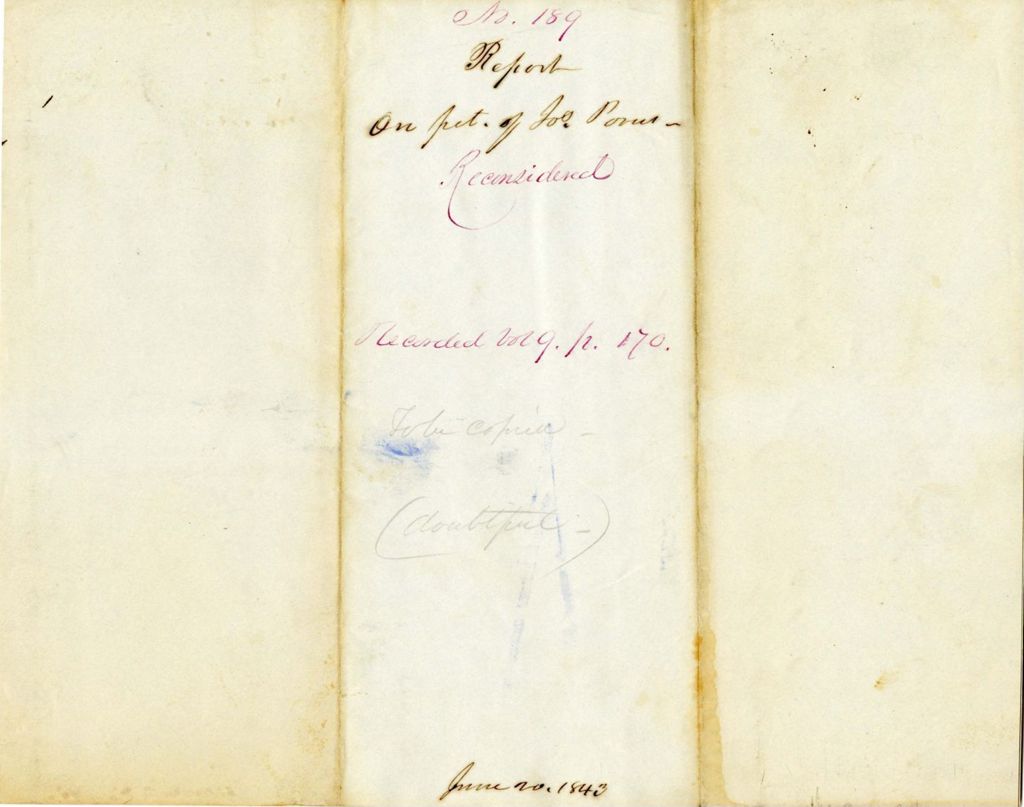 No. 189
Report
On pet. of Jos. Porus -
Reconsidered
Recorded vol 9. p. 170.
To be copied -
(doubtful -)
June 20. 1843